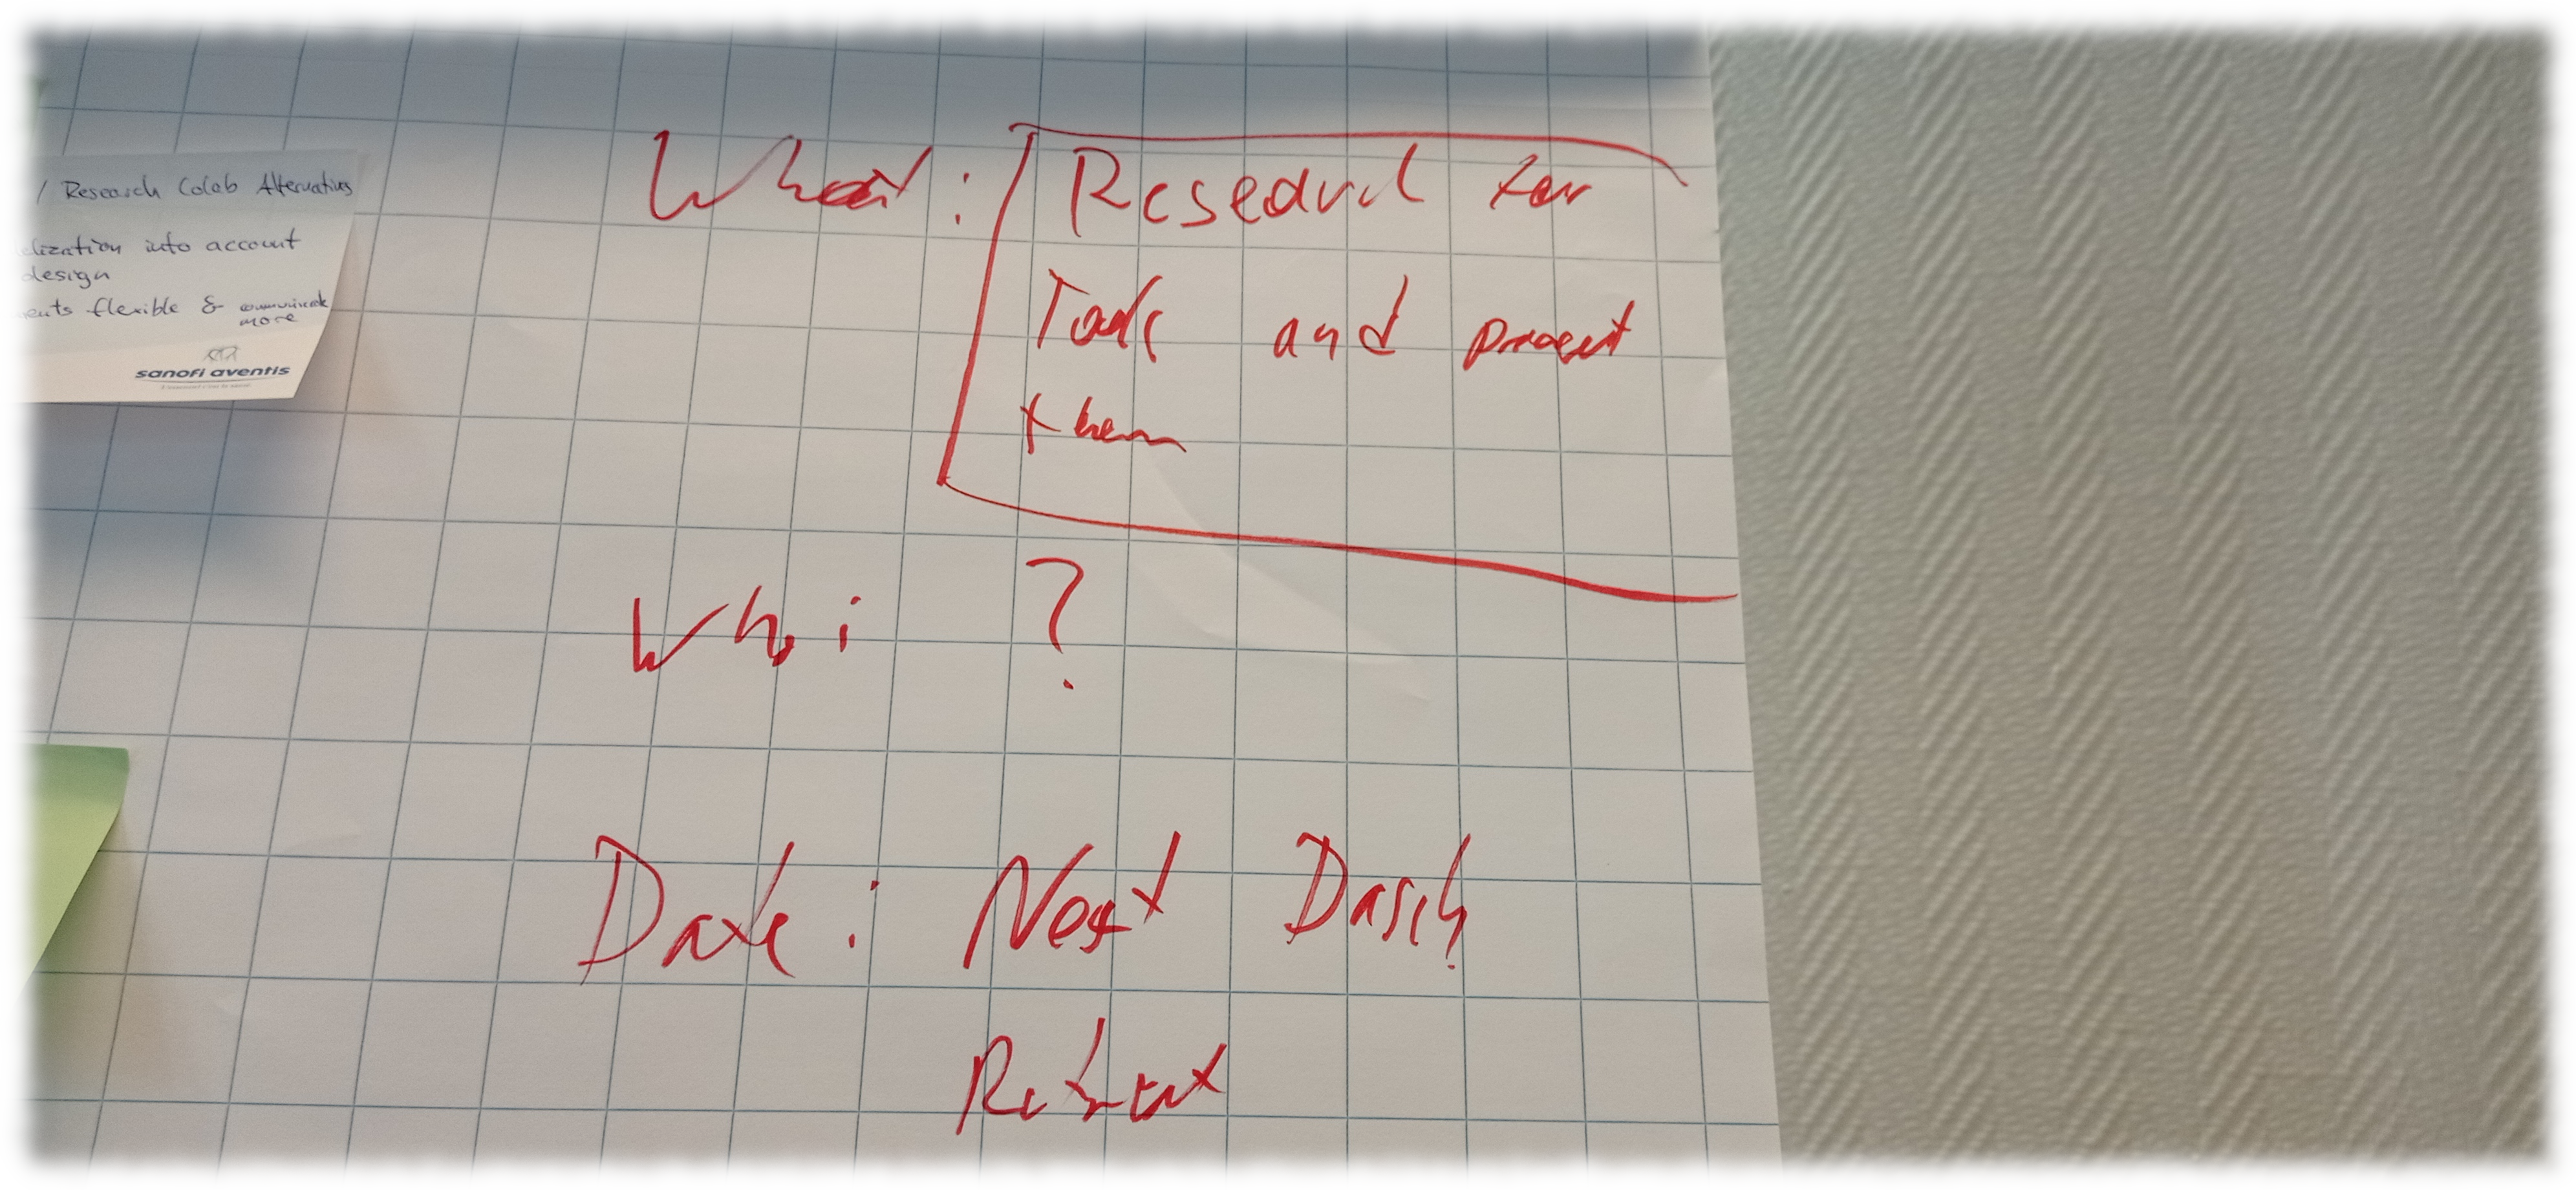 / Research Colab Alternatives
into account
design
flexible & communicate
more
sanofi aventis
What: Research for
Tools and present
them
Who: ?
Date: Next Dasch
Retreat